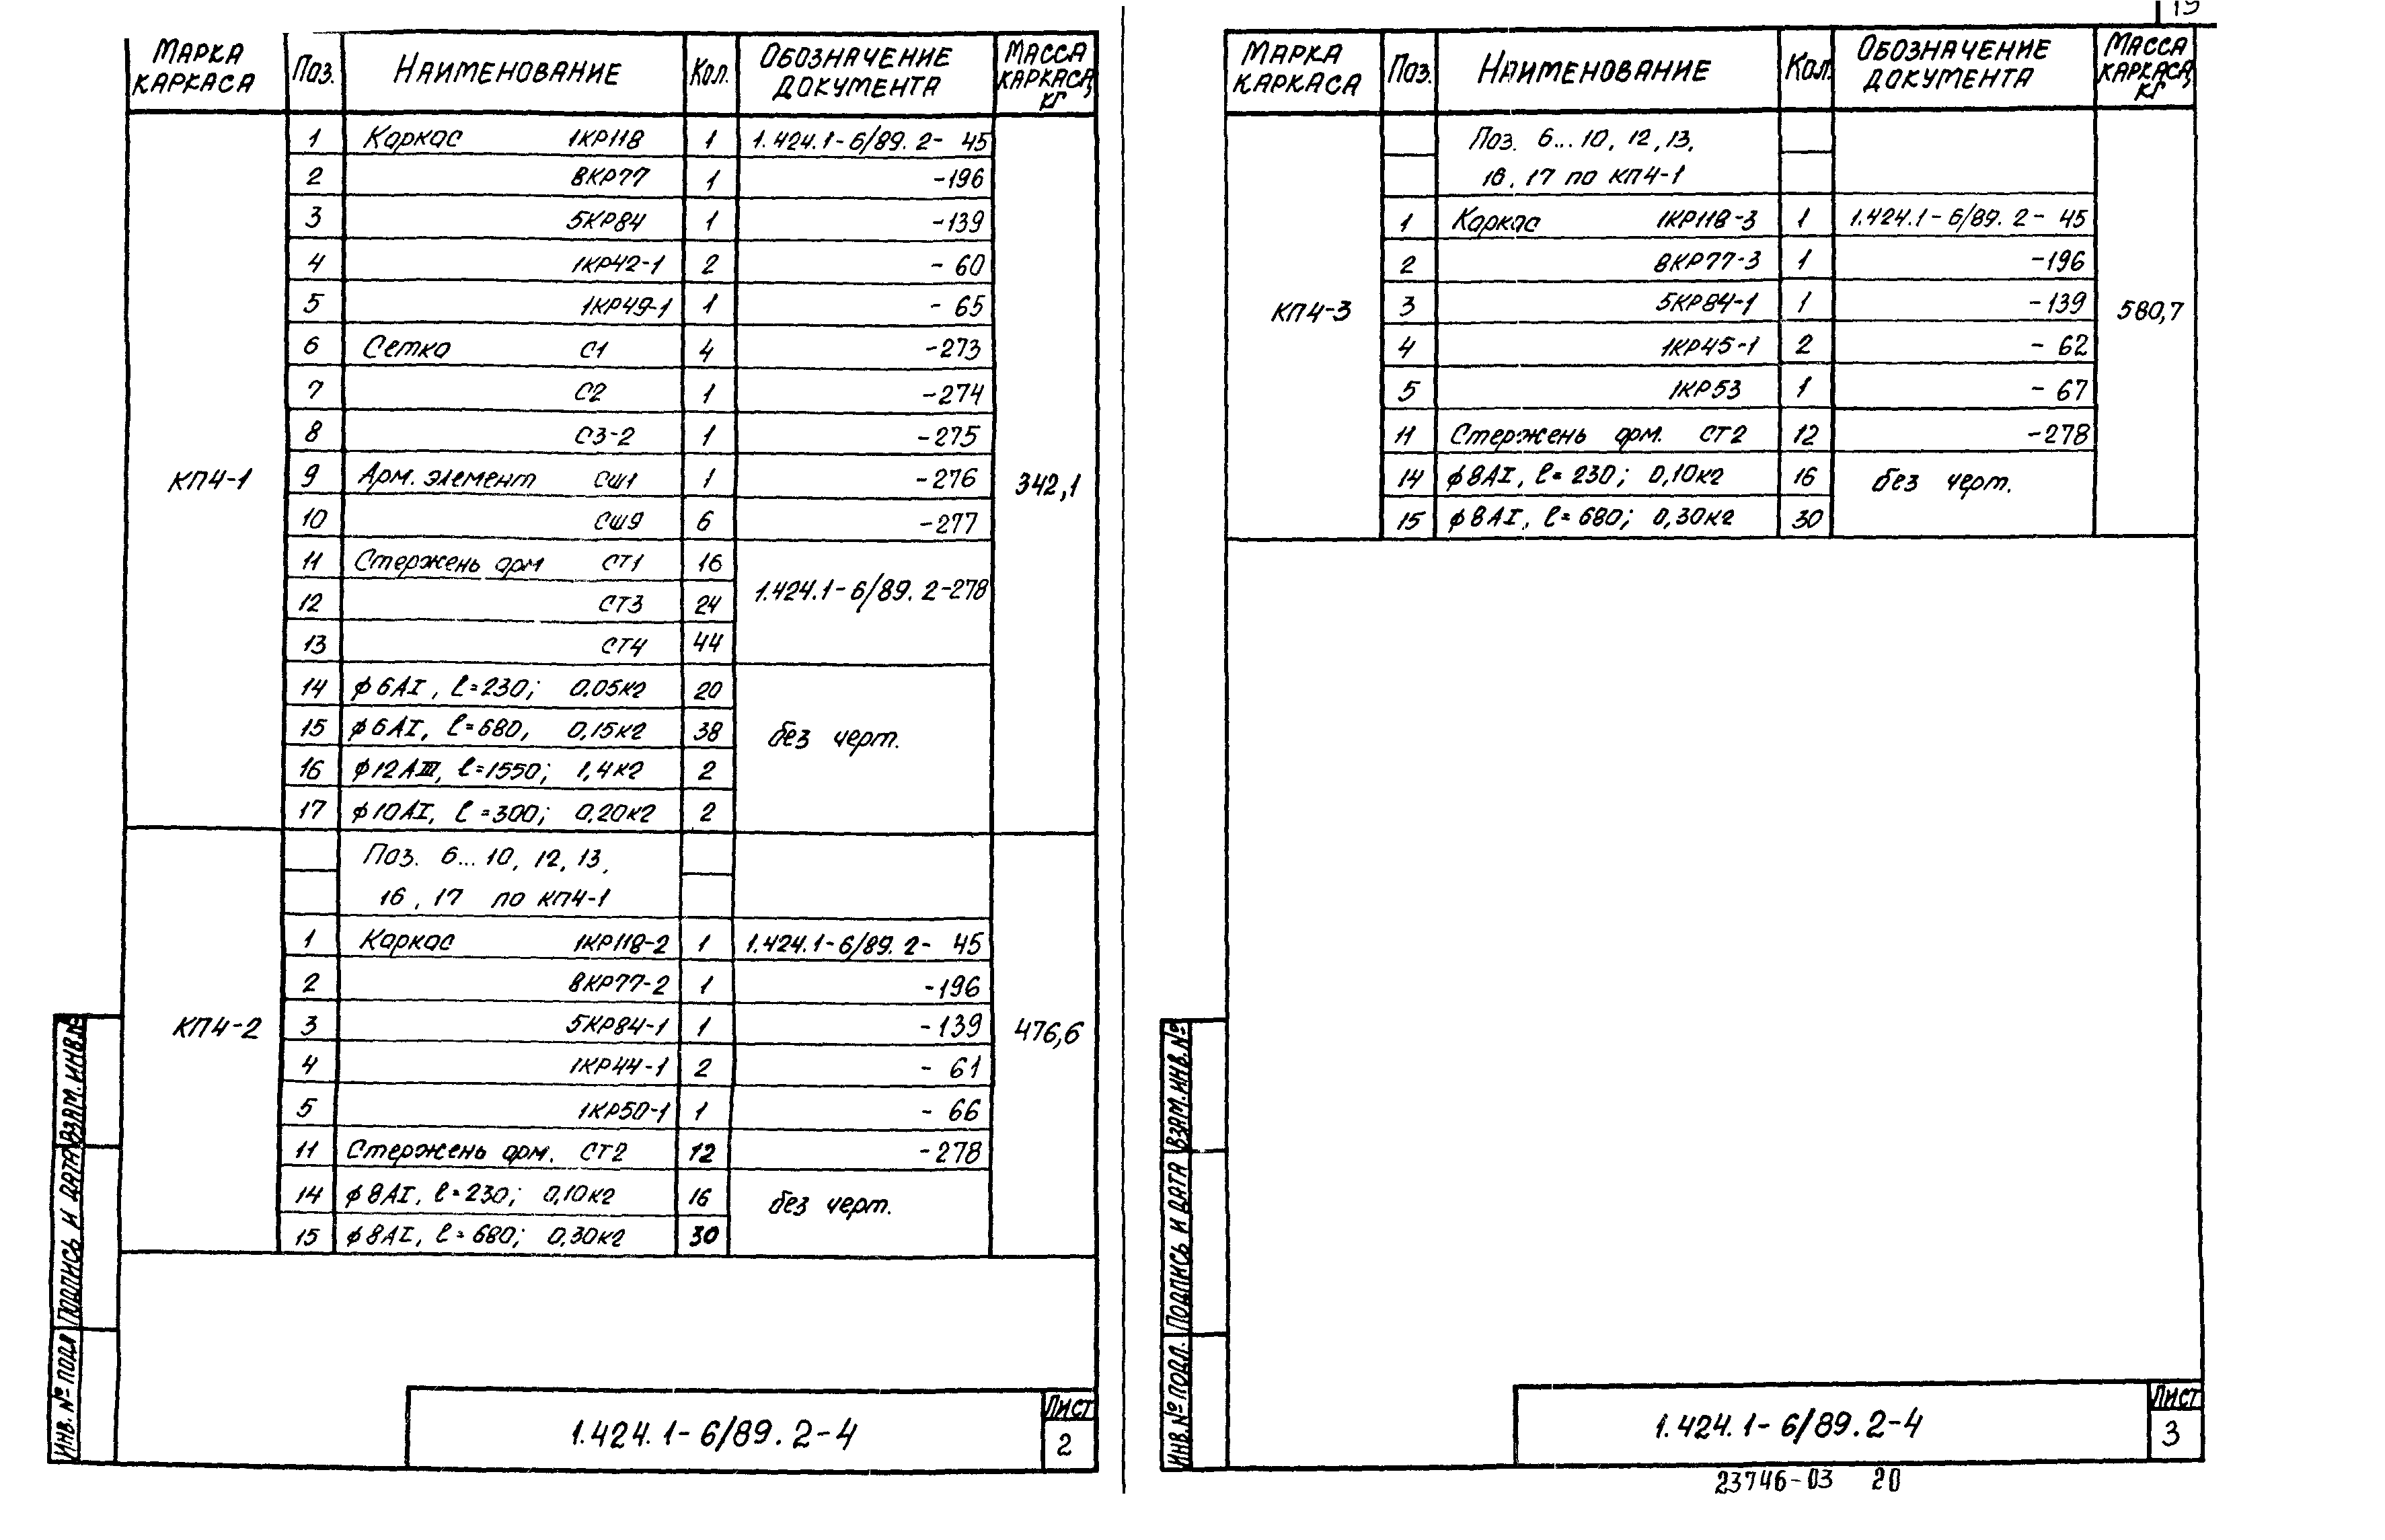 МАРКА КАРКАСА Поз. НАИМЕНОВАНИЕ Кол. ОБОЗНАЧЕНИЕ ДОКУМЕНТА МАССА КАРКАСА, КГ
1 Каркас 1КР118 1 1.424.1-6/89.2- 45
2 8КР77 1 -196
3 5КР84 1 -139
4 1КР42-1 2 - 60
5 1КР49-1 1 - 65
6 Сетка С1 4 -273
7 С2 1 -274
8 С3-2 1 -275
КП4-1 9 Арм. элемент Сш1 1 -276 342,1
10 Сш9 6 -277
11 Стержень арм СТ1 16
12 СТ3 24 1.424.1-6/89.2-278
13 СТ4 44
14 ϕ6АI, ℓ=230; 0.05кг 20
15 ϕ6АI, ℓ=680, 0,15кг 38 без черт.
16 ϕ12АIII, ℓ=1550; 1,4кг 2
17 ϕ10АI, ℓ=300; 0,20кг 2
Поз. 6...10, 12, 13,
16, 17 по КП4-1
1 Каркас 1КР118-2 1 1.424.1-6/89.2- 45
2 8КР77-2 1 -196
КП4-2 3 5КР84-1 1 -139 476,6
4 1КР44-1 2 - 61
5 1КР50-1 1 - 66
11 Стержень арм. СТ2 12 -278
14 ϕ8АI, ℓ=230; 0,10кг 16 без черт.
15 ϕ8АI, ℓ=680; 0,30кг 30
ВЗАМ. ИНВ.№
ПОДПИСЬ И ДАТА
ИНВ. № ПОДЛ
1.424.1-6/89.2-4
Лист
2
19
МАРКА КАРКАСА Поз. НАИМЕНОВАНИЕ Кол. ОБОЗНАЧЕНИЕ ДОКУМЕНТА МАССА КАРКАСА, КГ
Поз. 6...10, 12, 13,
16, 17 по КП4-1
1 Каркас 1КР118-3 1 1.424.1-6/89.2- 45
2 8КР77-3 1 -196
КП4-3 3 5КР84-1 1 -139 580,7
4 1КР45-1 2 - 62
5 1КР53 1 - 67
11 Стержень арм. СТ2 12 -278
14 ϕ8АI, ℓ=230; 0,10кг 16 без черт.
15 ϕ8АI, ℓ=680; 0,30кг 30
ВЗАМ. ИНВ.№
ПОДПИСЬ И ДАТА
ИНВ. № ПОДЛ.
1.424.1-6/89.2-4
Лист
3
23746-03 20